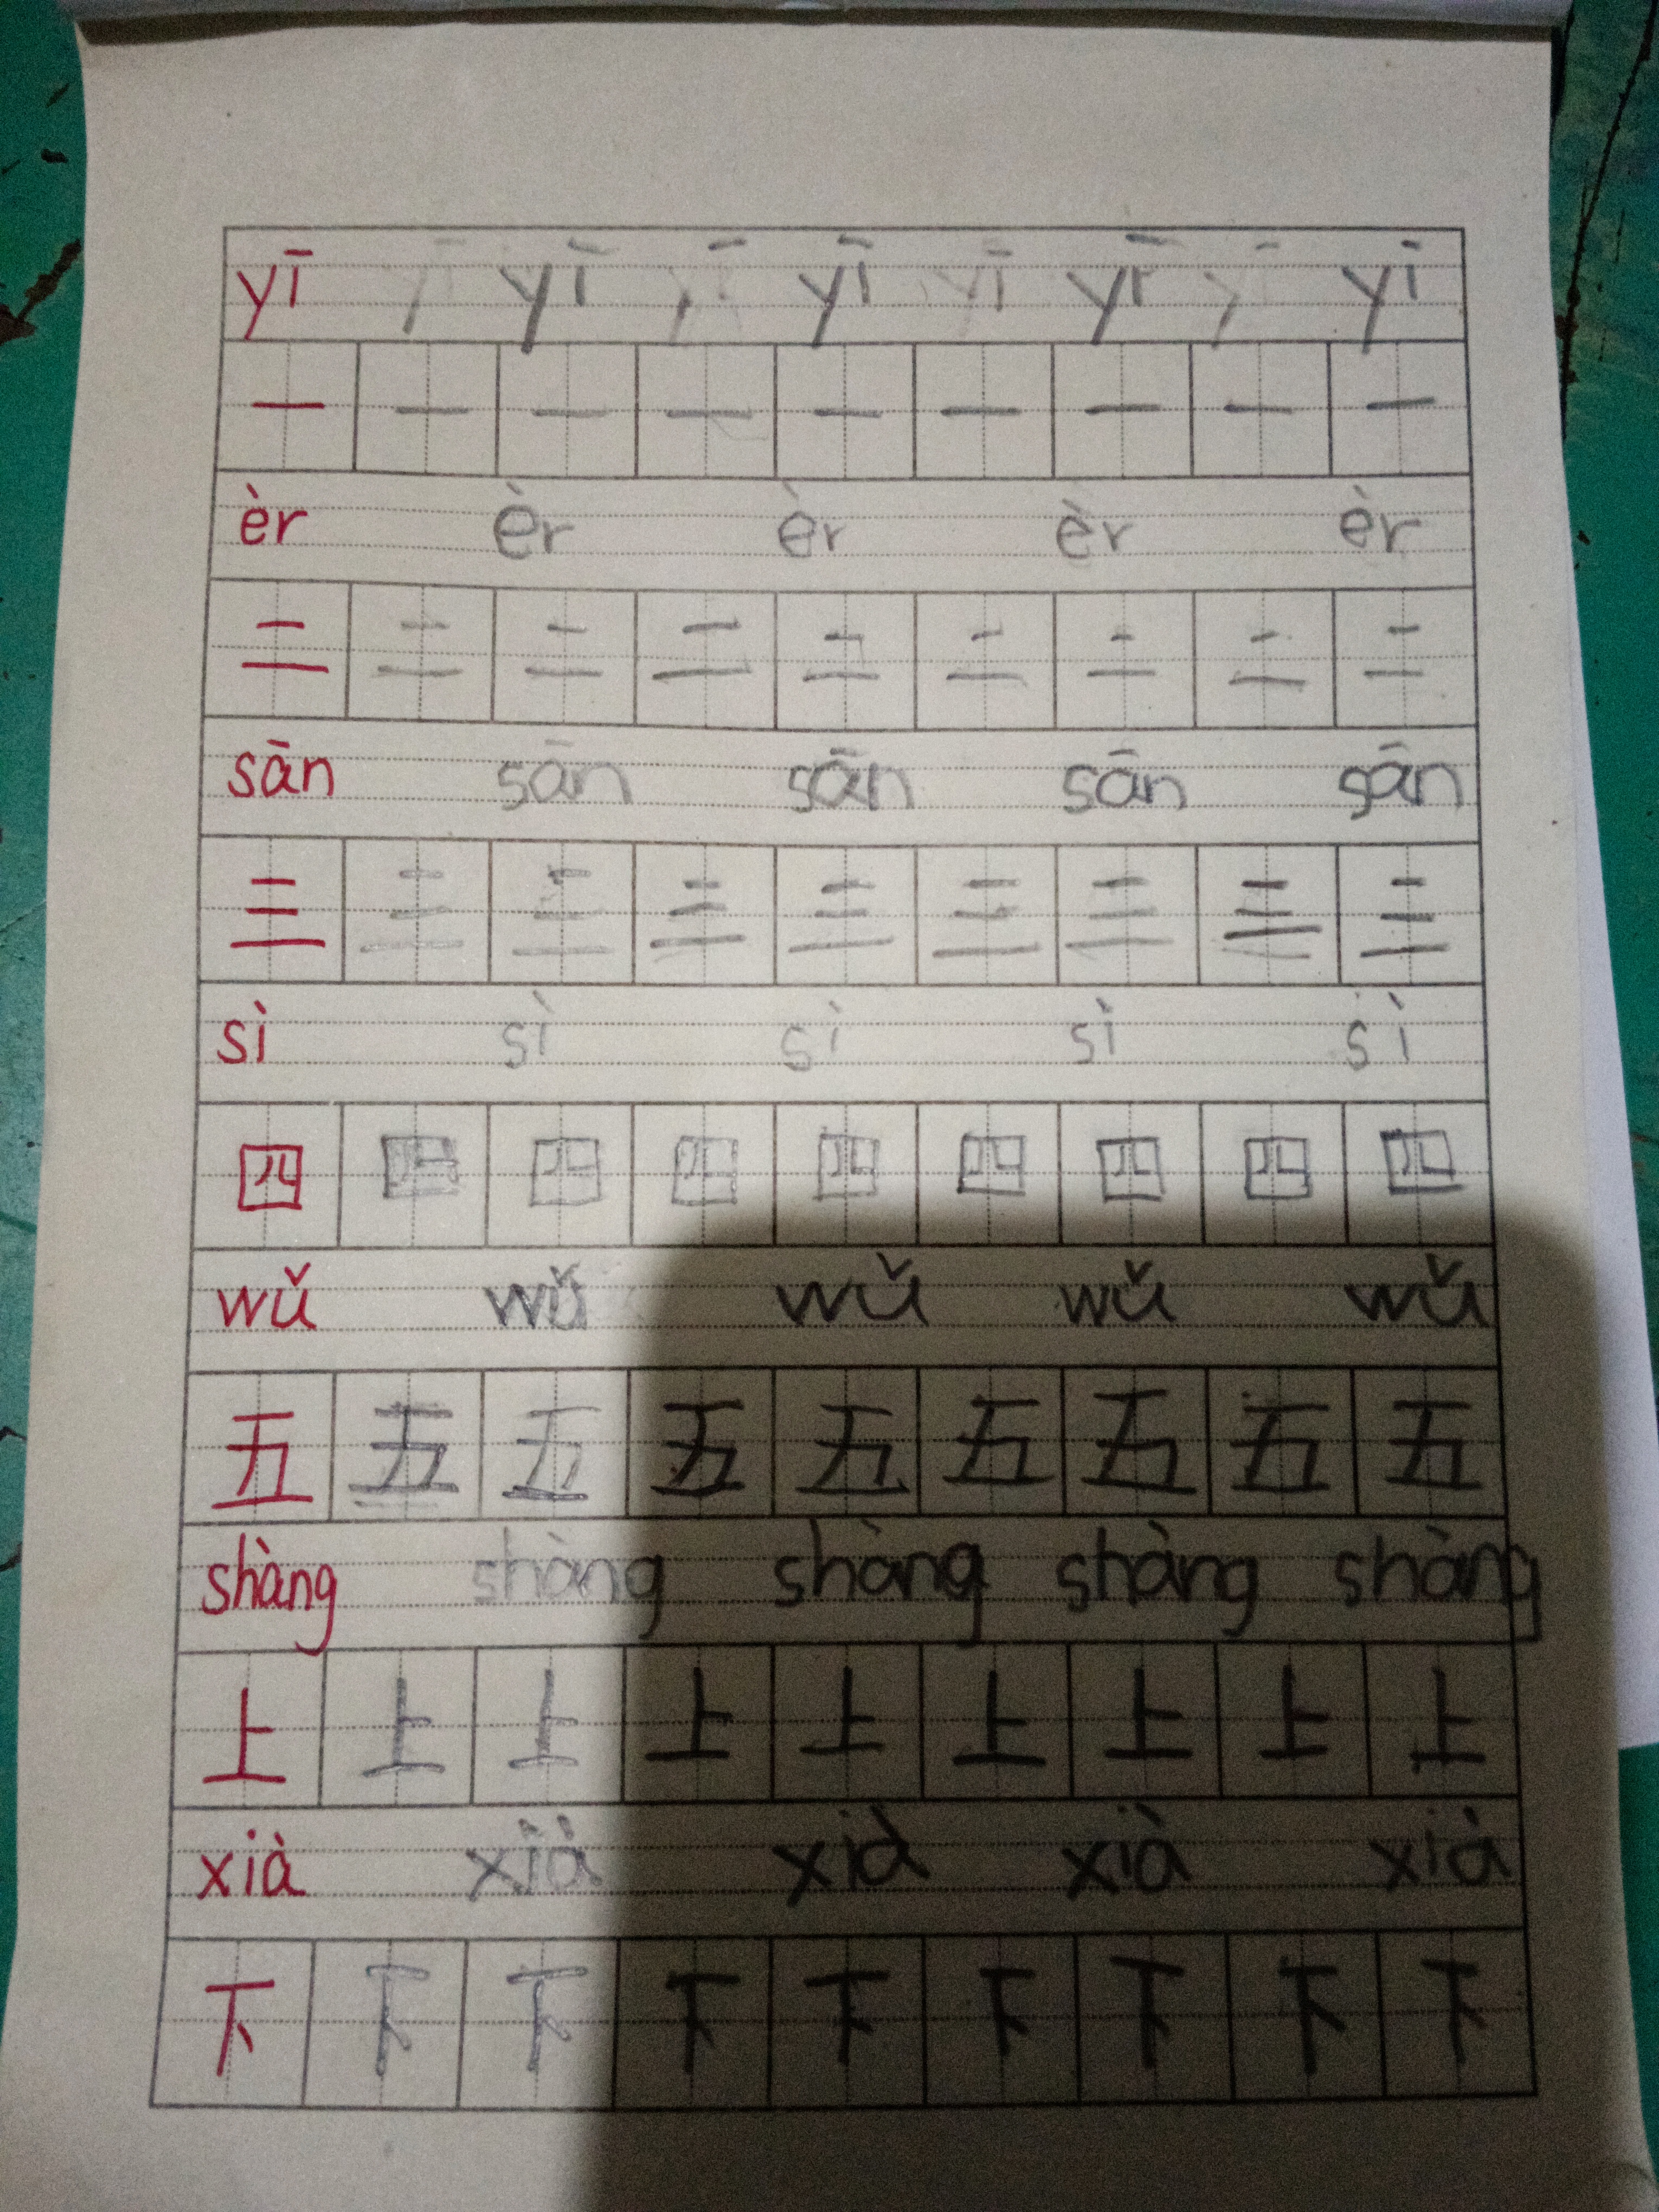 yī yī yī yī yī yī yī yī
一 一 一 一 一 一 一 一 一
èr èr èr èr èr
二 二 二 二 二 二 二 二 二
sān sān sān sān sān
三 三 三 三 三 三 三 三 三
sì sì sì sì sì
四 四 四 四 四 四 四 四 四
wǔ wǔ wǔ wǔ wǔ
五 五 五 五 五 五 五 五 五
shàng shàng shàng shàng shàng
上 上 上 上 上 上 上 上 上
xià xià xià xià xià
下 下 下 下 下 下 下 下 下